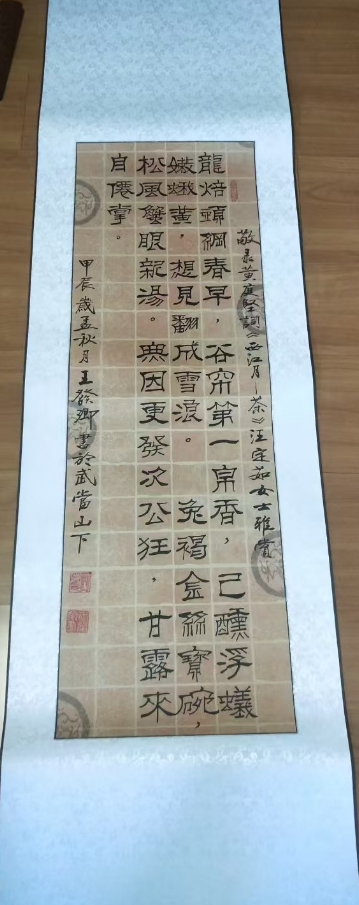 敬录黄庭坚词《西江月—茶》汪定茹女士雅赏
龍焙頭綱春早，谷帘第一泉香，已醺浮蟻
嫩鵝黃，想見翻成雪浪。兔褐金絲寶碗，
松風蟹眼新湯。無因更發次公狂，甘露來
自僊掌。
甲辰歲孟秋月王發卿書於武當山下